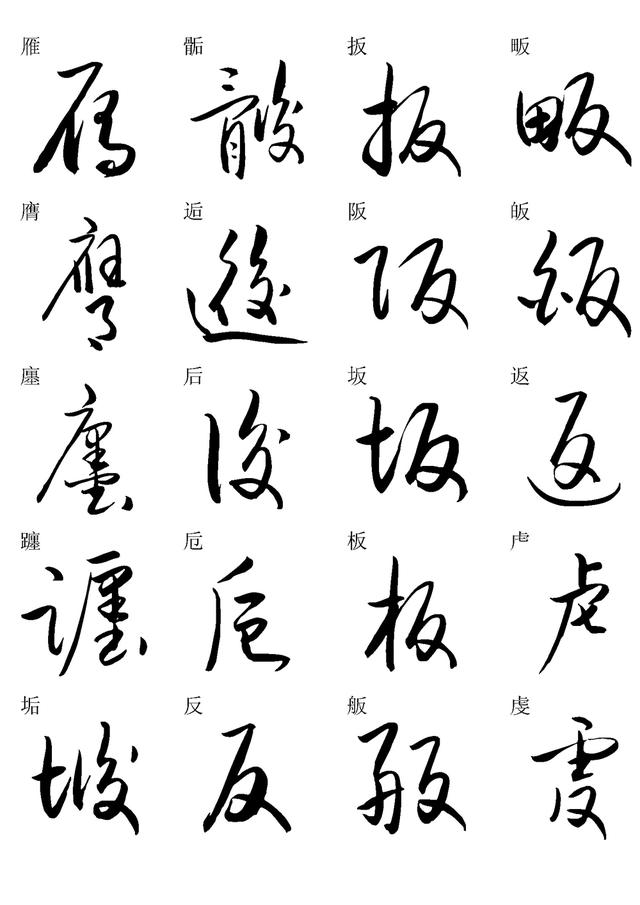 雁 骺 扳 畈
膺 逅 阪 皈
廛 后 坂 返
躔 卮 板 虍
垢 反 舨 虔